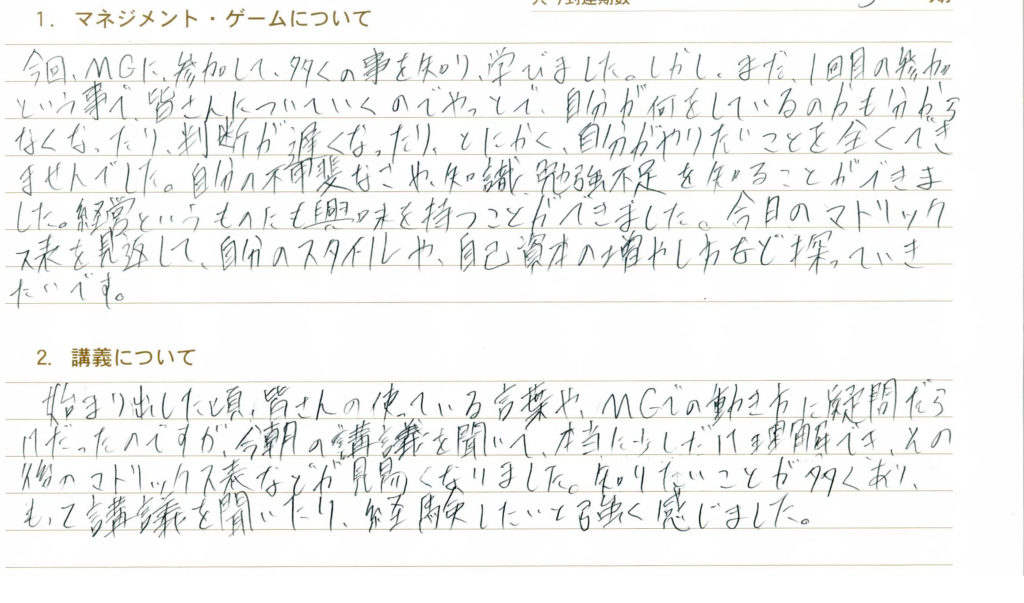 1. マネジメント・ゲームについて
今回、MGに、参加して、多くの事を知り、学びました。しかし、まだ、1回目の参加
という事で、皆さんについていくのでやっとで、自分が何をしているのかも分から
なくなったり、判断が遅くなったり、とにかく、自分がやりたいことを全くでき
ませんでした。自分の不甲斐なさや、知識、勉強不足を知ることができま
した。経営というものにも興味を持つことができました。今日のマトリック
ス表を見返して、自分のスタイルや、自己資本の増やしかたなど探っていき
たいです。
2. 講義について
始まり出した頃、皆さんの使っている言葉や、MGでの動き方に疑問だら
けだったのですが、今朝の講議を聞いて、本当に少しだけ理解でき、その
後のマトリックス表などが見易くなりました。知りたいことが多くあり、
もって講議を聞いたり、経験したいと強く感じました。